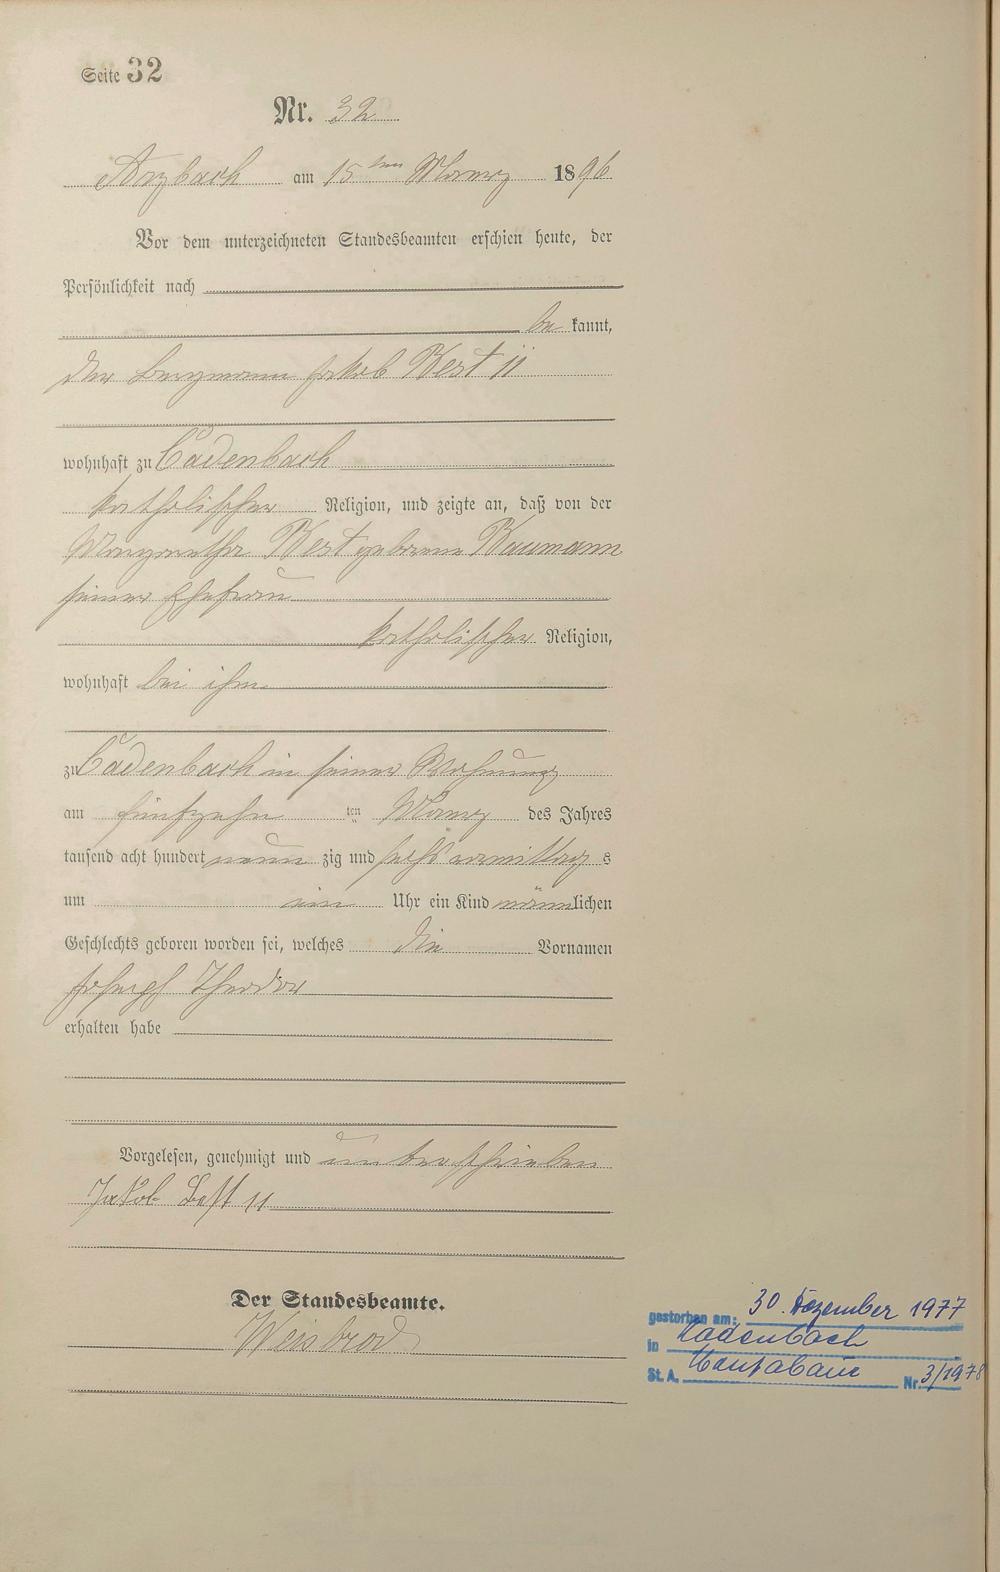 Seite 32
Nr. 32
Arzbach am 15ten Maerz 1896
Vor dem unterzeichneten Standesbeamten erschien heute, der
Persönlichkeit nach
be kannt,
der Bergmann Jakob Best II
wohnhaft zu Cadenbach
katholischer Religion, und zeigte an, daß von der
Margaretha Best geborene Baumann
seiner Ehefrau
katholischer Religion,
wohnhaft bei ihm
zu Cadenbach in seiner Wohnung
am fünfzehn ten Maerz des Jahres
tausend acht hundert neun zig und sechs vormittag s
um ein Uhr ein Kind männlichen
Geschlechts geboren worden sei, welches die Vornamen
Joseph Theodor
erhalten habe
Vorgelesen, genehmigt und unterschrieben
Jakob Best II
Der Standesbeamte.
Weisbrod
gestorben am: 30. Dezember 1977
in Kadenbach
St. A. Montabaur Nr. 3/1978